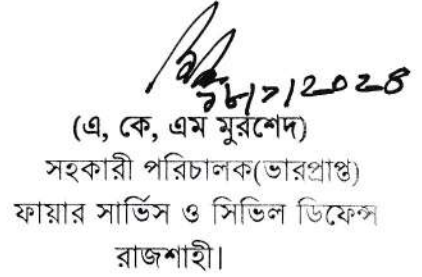 ১৮/৭/২০২৪
(এ, কে, এম মুরশেদ)
সহকারী পরিচালক(ভারপ্রাপ্ত)
ফায়ার সার্ভিস ও সিভিল ডিফেন্স
রাজশাহী।